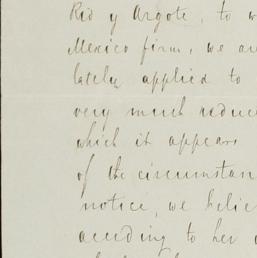 Rid y Argote, to w
Mexico firm, we ar
lately applied to
very much reduce
which it appears
of the circumstan
notice, we belie
according to her